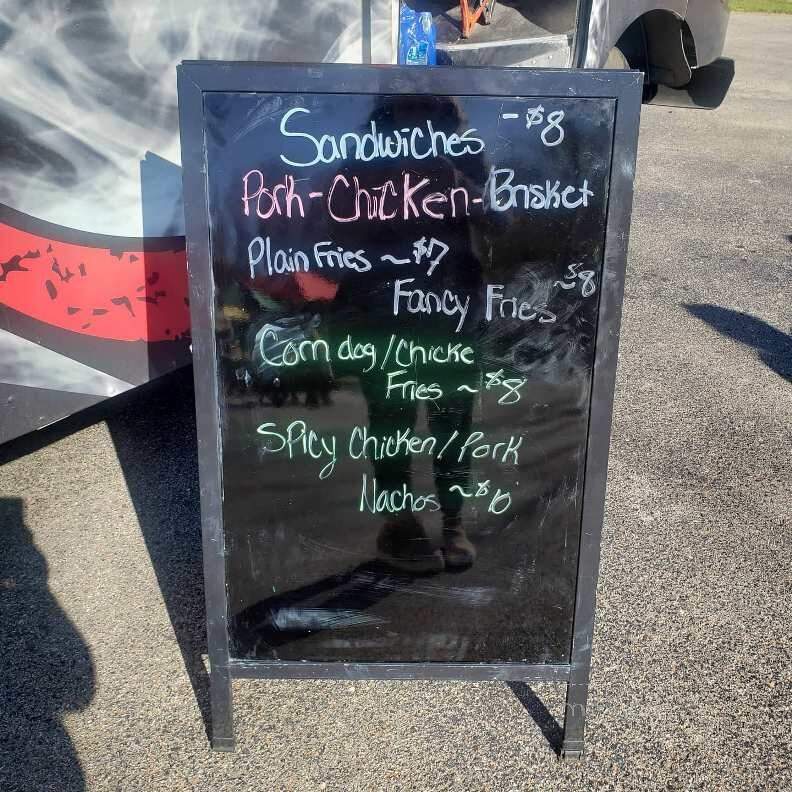 Sandwiches -$8
Pork-Chicken-Brisket
Plain Fries ~$7
Fancy Fries ~$8
Corn dog/Chicke
Fries ~$8
Spicy Chicken/Pork
Nachos ~$10